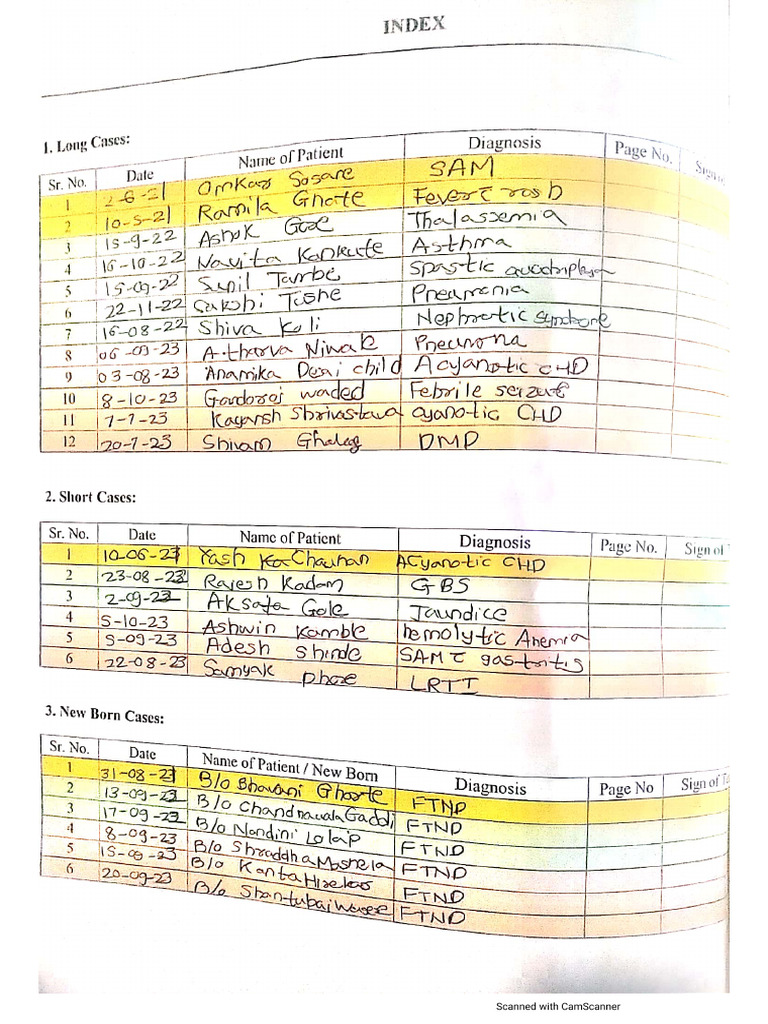 INDEX
1. Long Cases:
Sr. No. Date Name of Patient Diagnosis Page No. Sign
1 2-6-21 Omkar Sosare SAM
2 10-5-21 Ramila Ghote Fever c̄ rash
3 15-9-22 Ashok Gore Thalassemia
4 16-10-22 Navita Kankute Asthma
5 15-09-22 Sunil Tambe Spastic quadriplegia
6 22-11-22 Sakshi Tashe Pneumonia
7 16-08-22 Shiva Koli Nephrotic Syndrome
8 06-09-23 Atharva Niwale
9 03-08-23 Anamika Desai child Acyanotic CHD
10 8-10-23 waded Febrile seizure
11 7-7-23 Shrivastava cyanotic CHD
12 20-7-23 Shivam DMD
2. Short Cases:
Sr. No. Date Name of Patient Diagnosis Page No. Sign of
1 10-06-21 Yash Acyanotic CHD
2 23-08-23 Rajesh Kadam GBS
3 2-09-23 Aksata Gole Jaundice
4 5-10-23 Ashwin Kamble hemolytic Anemia
5 5-09-23 Adesh Shinde SAM c̄ gastritis
6 22-08-23 Samyak LRTI
3. New Born Cases:
Sr. No. Date Name of Patient / New Born Diagnosis Page No Sign of
1 31-08-21 B/o Bhavani Ghorte FTND
2 13-09-23 B/o Chandrawala Gaddi FTND
3 17-09-23 B/o Nandini Lolap FTND
4 8-09-23 B/o Shraddha FTND
5 15-09-23 B/o Kanta FTND
6 20-09-23 B/o Shantubai FTND
Scanned with CamScanner